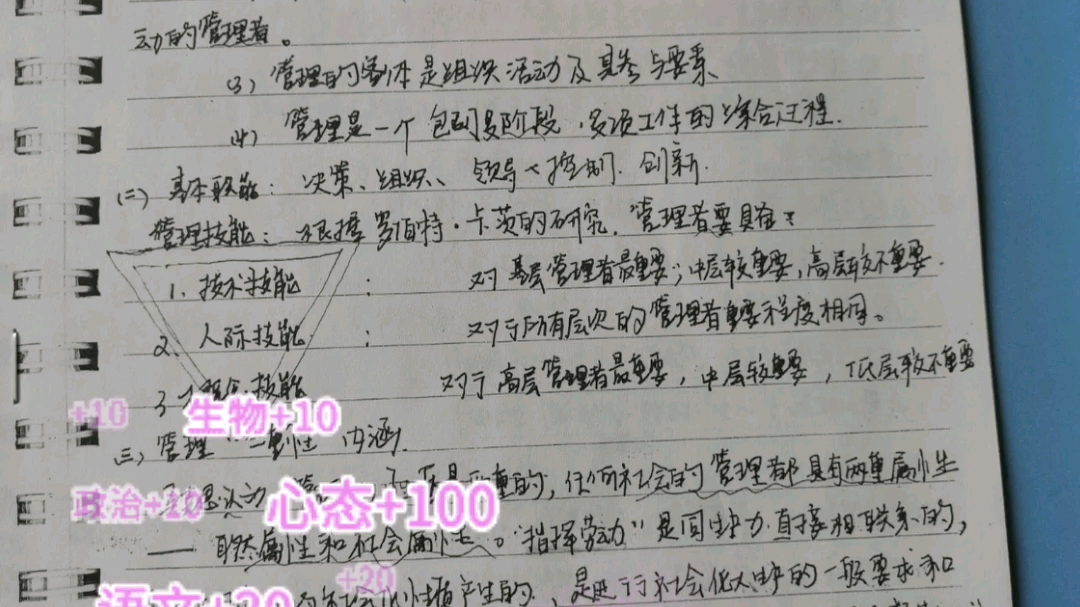 动的管理者。
(3) 管理的客体是组织活动及其参与要素
(4) 管理是一个包囗多阶段、多项工作的综合过程.
(二) 基本职能: 决策、组织、领导、控制. 创新.
管理技能: 根据罗伯特·卡茨的研究, 管理者要具备:
1. 技术技能 : 对基层管理者最重要; 中层较重要, 高层较不重要.
2. 人际技能 : 对于所有层次的管理者重要程度相同。
3 技能 对于高层管理者最重要, 中层较重要, 低层较不重要
+10 生物+10
三) 管理二重性内涵.
是两重的, 任何社会的管理都具有两重属性
政治+10 心态+100
——自然属性和社会属性。“指挥劳动”是同生产力直接相联系的,
+20
语文+20
产生的, 是进行社会化大生产的一般要求和